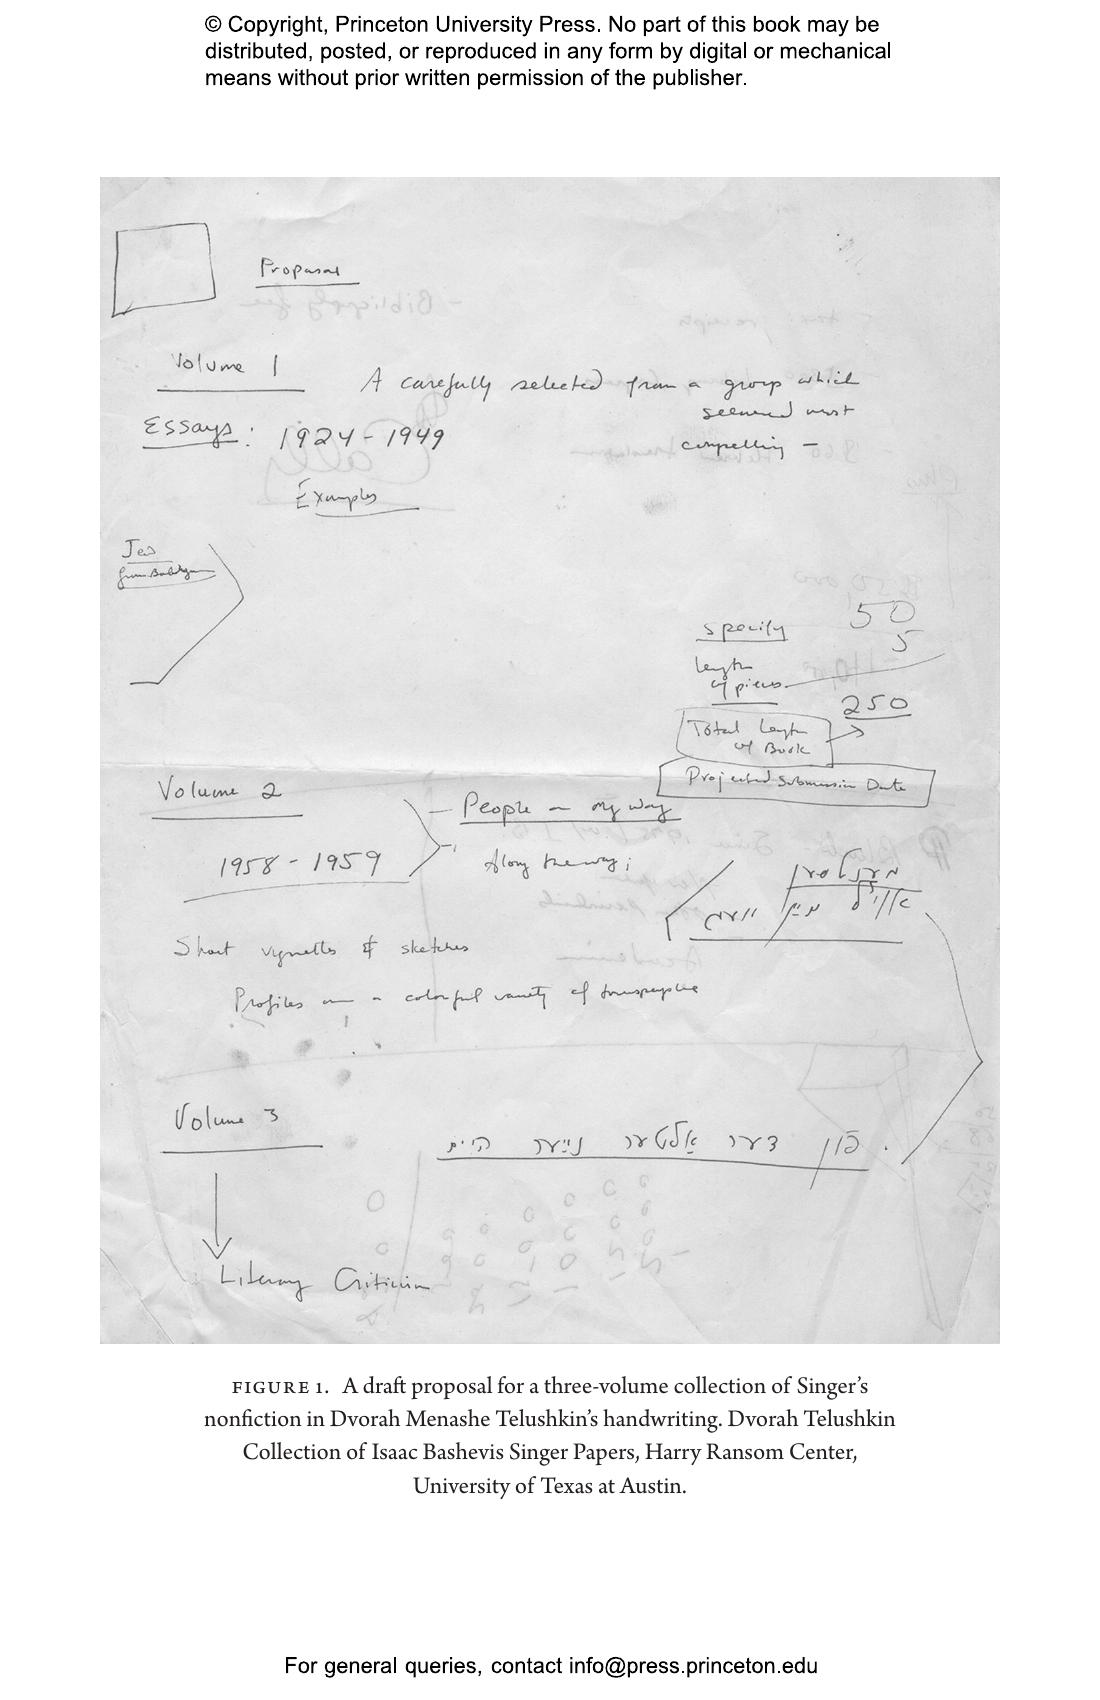 © Copyright, Princeton University Press. No part of this book may be
distributed, posted, or reproduced in any form by digital or mechanical
means without prior written permission of the publisher.
Proposal
Volume 1
A carefully selected from a group which
seemed most
compelling –
Essays: 1924-1949
Examples
Jew
from
specify
length
of pieces
50
5
250
Total Length
of Book
Projected Submission Date
Volume 2
1958-1959
People on My way
Along the way;
מענטשן
אויף מיין וועג
Short vignettes & sketches
Profiles on a colorful variety of
Volume 3
פון דער אלטער נייער היים
Literary Criticism
FIGURE 1. A draft proposal for a three-volume collection of Singer’s
nonfiction in Dvorah Menashe Telushkin’s handwriting. Dvorah Telushkin
Collection of Isaac Bashevis Singer Papers, Harry Ransom Center,
University of Texas at Austin.
For general queries, contact info@press.princeton.edu